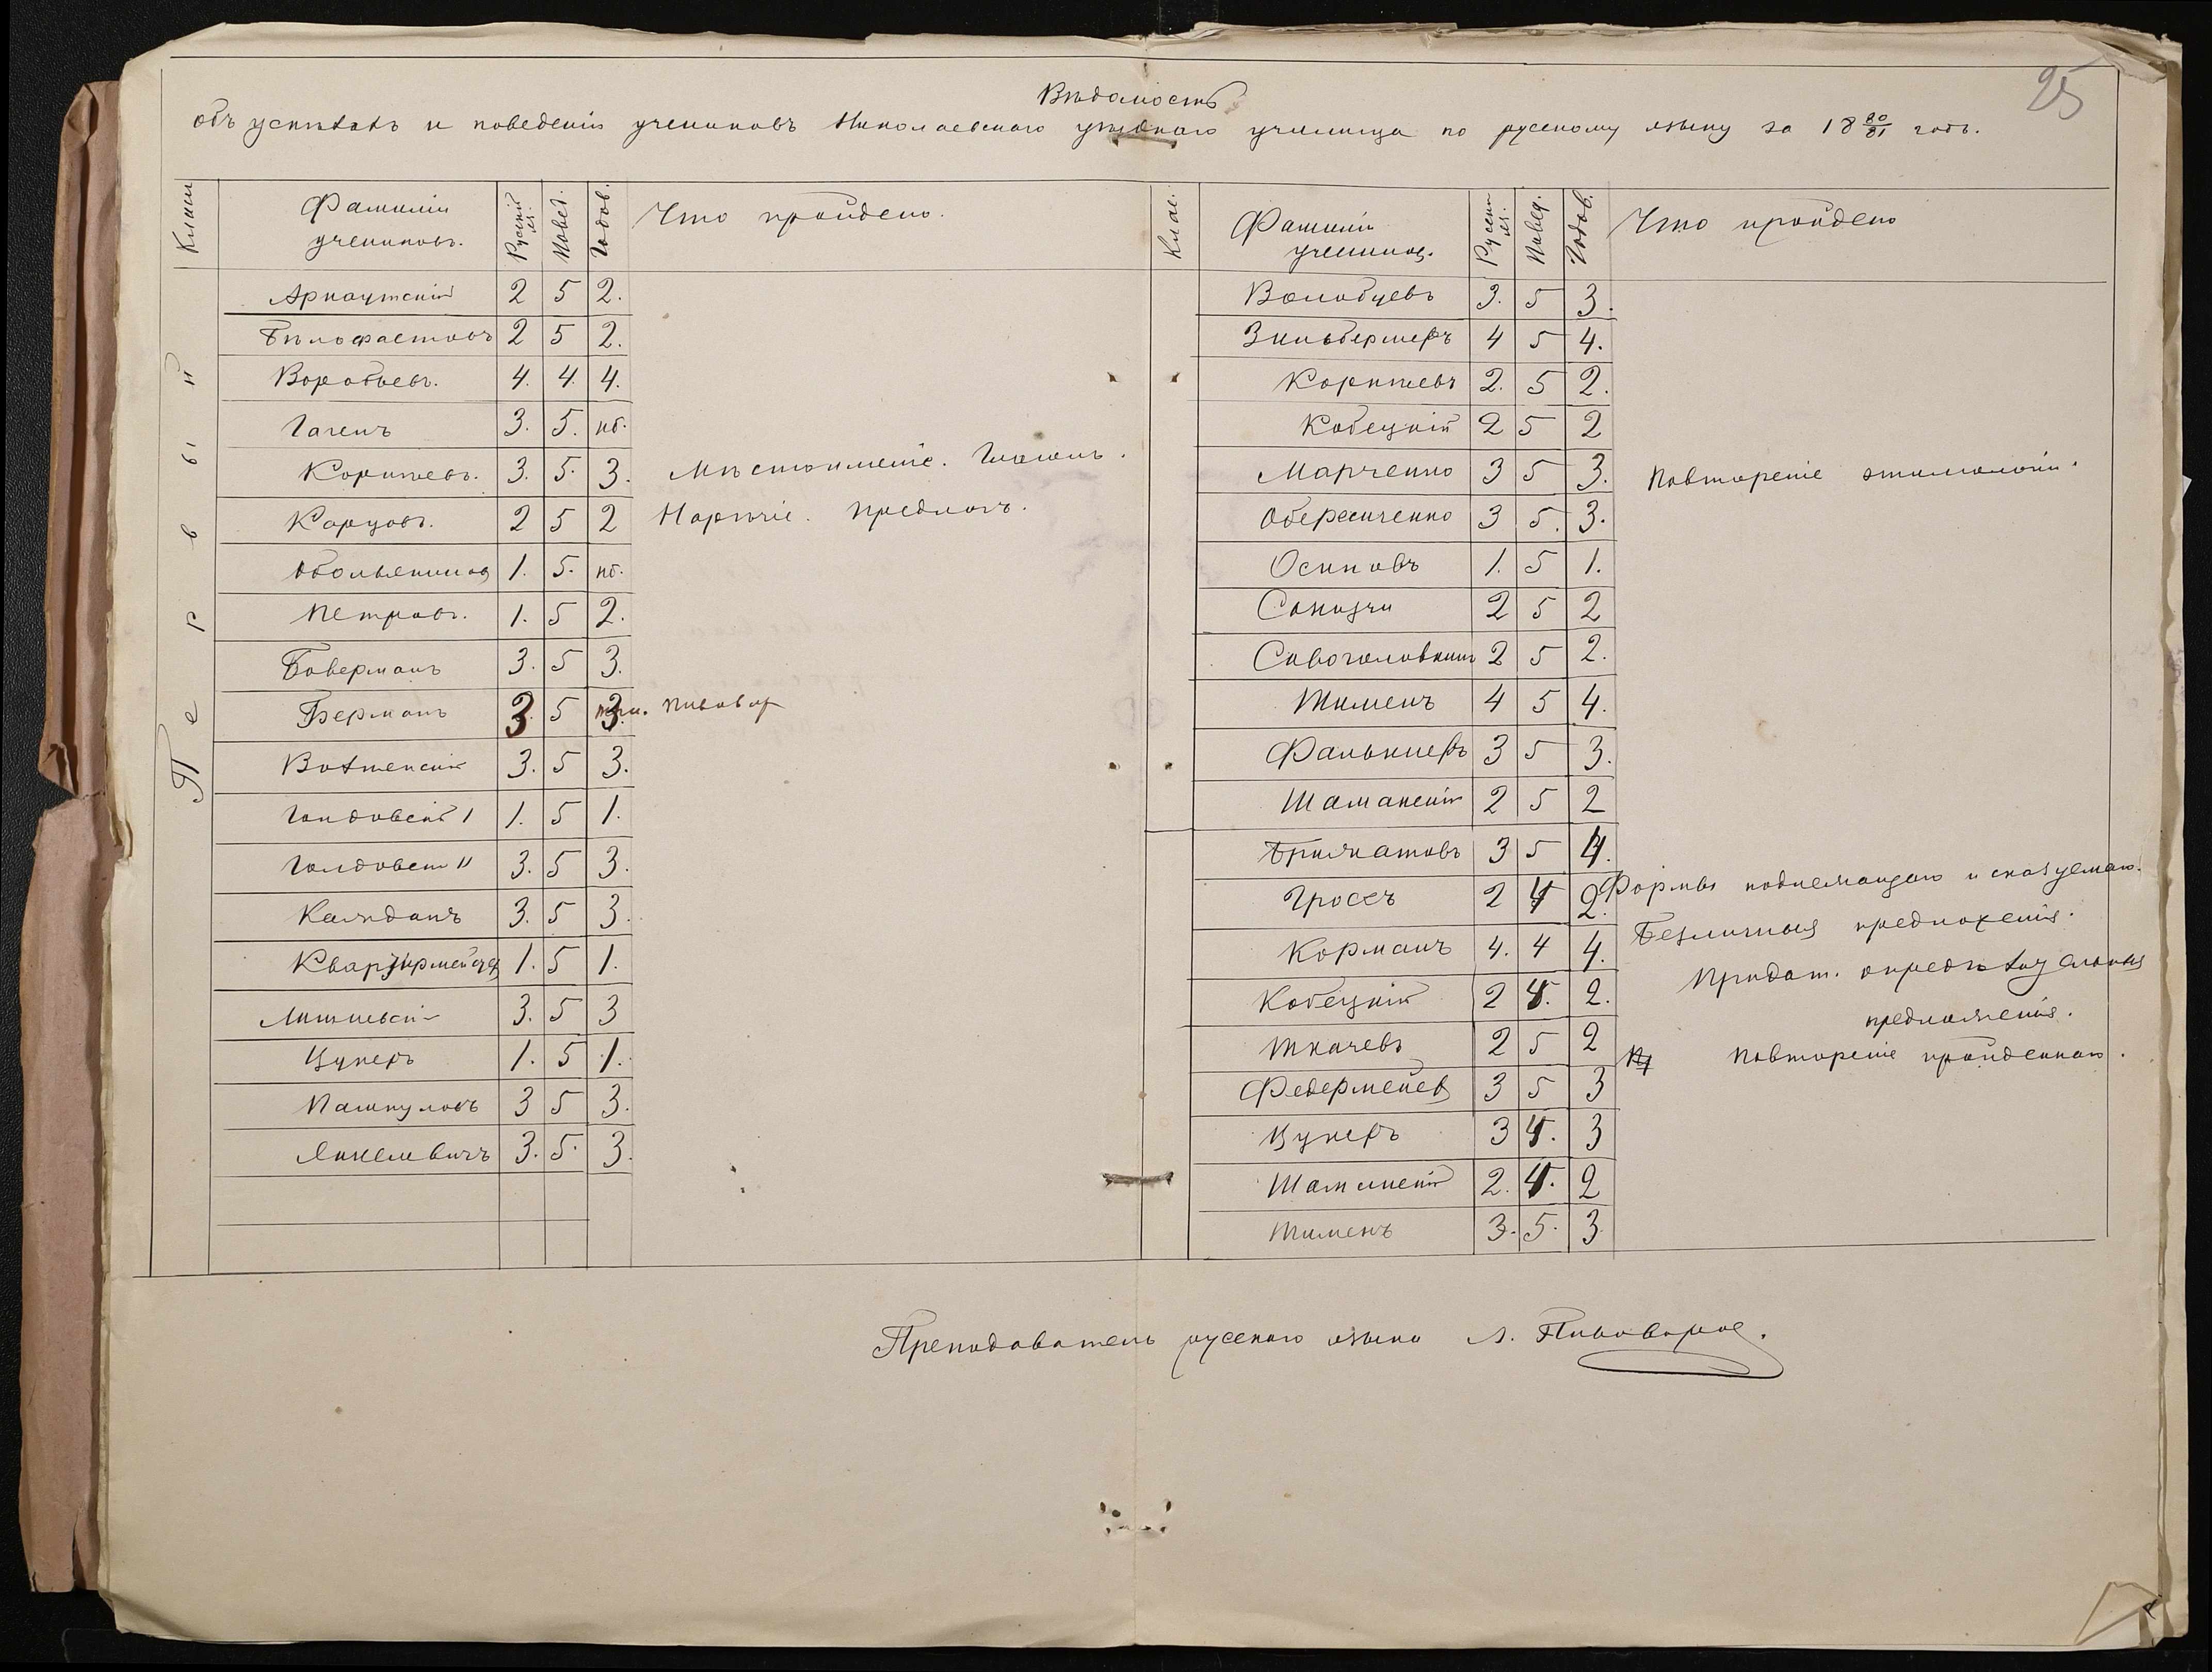 25
Вѣдомость
объ успѣхахъ и поведеніи учениковъ Николаевскаго уѣзднаго училища по русскому языку за 18 80/81 годъ.
Классы Фамиліи учениковъ. Русскій яз. Повед. Годов. Что пройдено.
Первый
Арнаутскій 2 5 2.
Бѣлофастовъ 2 5 2.
Воробьевъ. 4. 4. 4.
Гагенъ 3. 5. нб.
Корнѣевъ. 3. 5. 3. Мѣстоименіе. Глаголъ.
Карцовъ. 2 5 2 Нарѣчіе. Предлогъ.
Обольяниновъ 1. 5. нб.
Петровъ. 1. 5 2.
Боверманъ 3. 5 3.
Берманъ 3. 5 3. Пивовар
Вохменскій 3. 5 3.
Голдовскій I 1. 5 1.
Голдовскій II 3. 5 3.
Калжданъ 3. 5 3.
1. 5 1.
3. 5 3
Цукеръ 1. 5 1.
Пашкуловъ 3 5 3.
Янкелевичъ 3. 5. 3.
Клас. Фамиліи учениковъ. Русскі яз. Повед. Годов. Что пройдено
Волобуевъ 3. 5 3.
Зильбершеръ 4 5 4.
Корнѣевъ 2. 5 2.
Кобецкій 2 5 2
Марченко 3 5 3. Повтореніе этимологіи.
Оберемченко 3 5. 3.
Осиповъ 1. 5 1.
2 5 2
Сивоголовкинъ 2 5 2.
Тименъ 4 5 4.
Фалькнеръ 3 5 3.
Шаманскій 2 5 2
3 5 4.
Гроссъ 2 4 2. Формы подлежащаго и сказуемаго.
Корманъ 4. 4 4. Безличныя предложенія.
Кобецкій 2 4. 2. Придат. опредѣлительныя
предложенія.
Ткачевъ 2 5 2 Повтореніе пройденнаго.
Федермейеръ 3 5 3
Цукеръ 3 4. 3
Шаманскій 2. 4. 2
Тименъ 3. 5. 3
Преподаватель русскаго языка Л. Пивоваровъ.